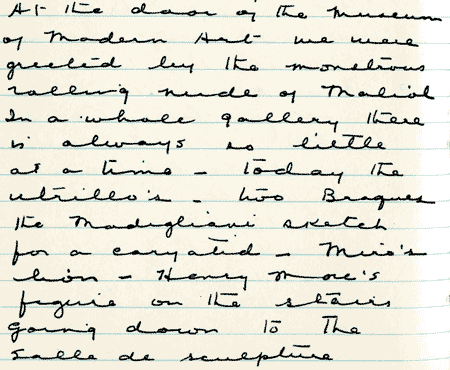 At the door of the Museum
of Modern Art we were
greeted by the monstrous
rolling nude of Maliol
In a whole gallery there
is always so little
at a time – today the
utrillo's – two Braques
the Madigliani sketch
for a caryatid – Miro's
lion – Henry More's
figure on the stairs
going down to the
Salle de sculpture